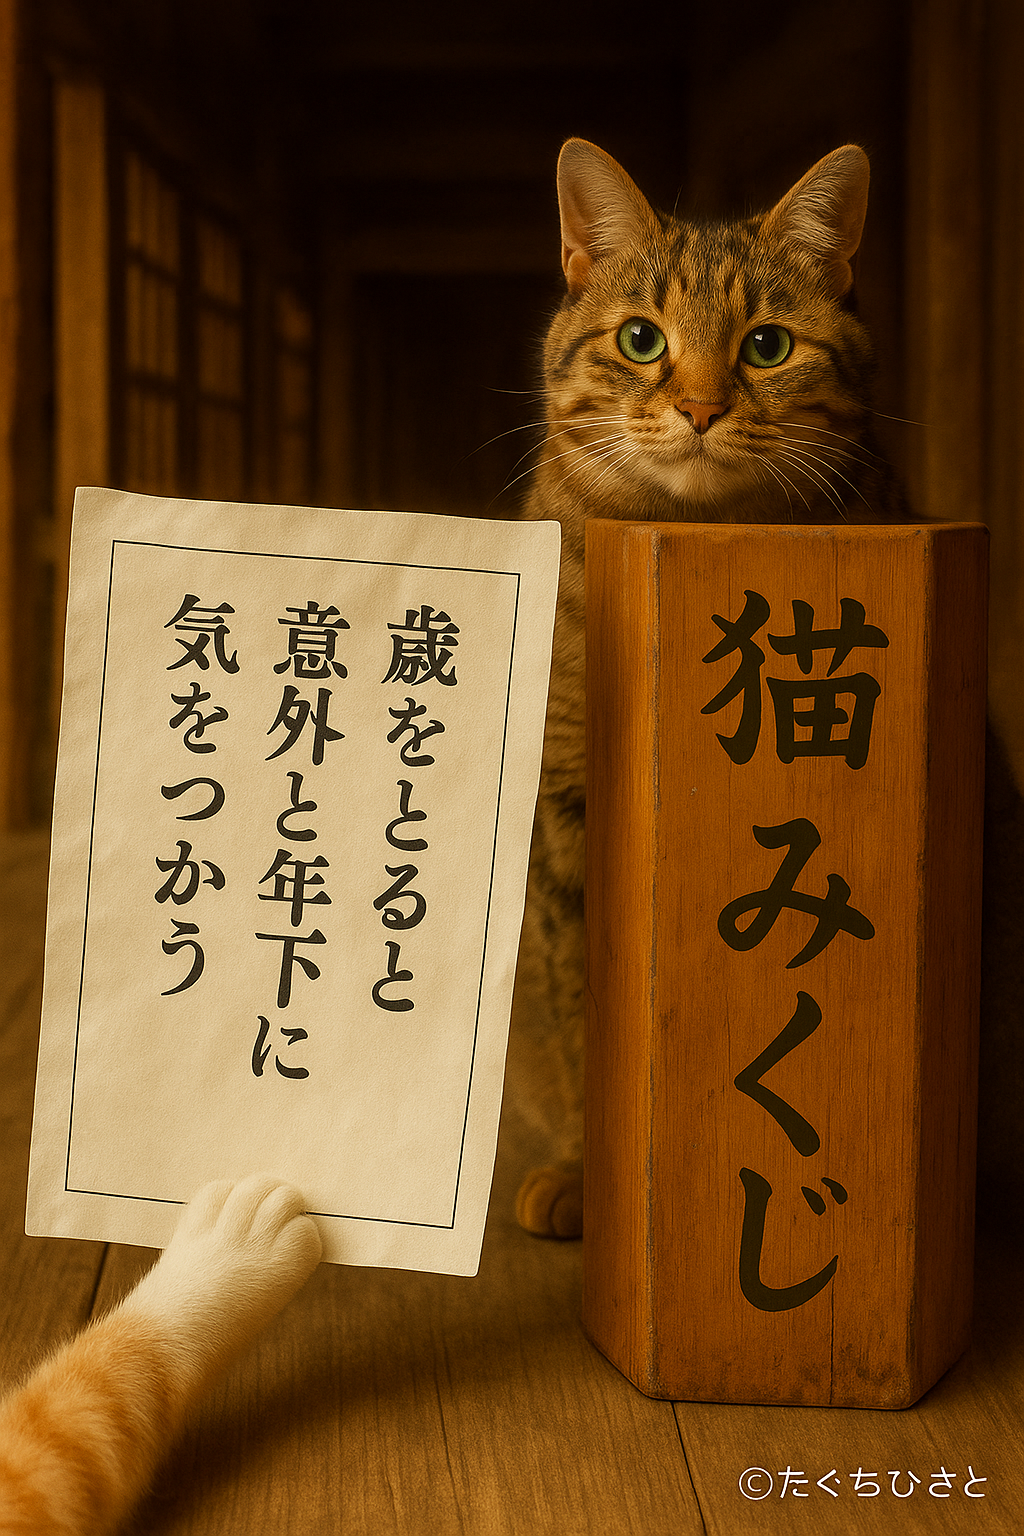 歳をとると
意外と年下に
気をつかう
猫みくじ
©たぐちひさと